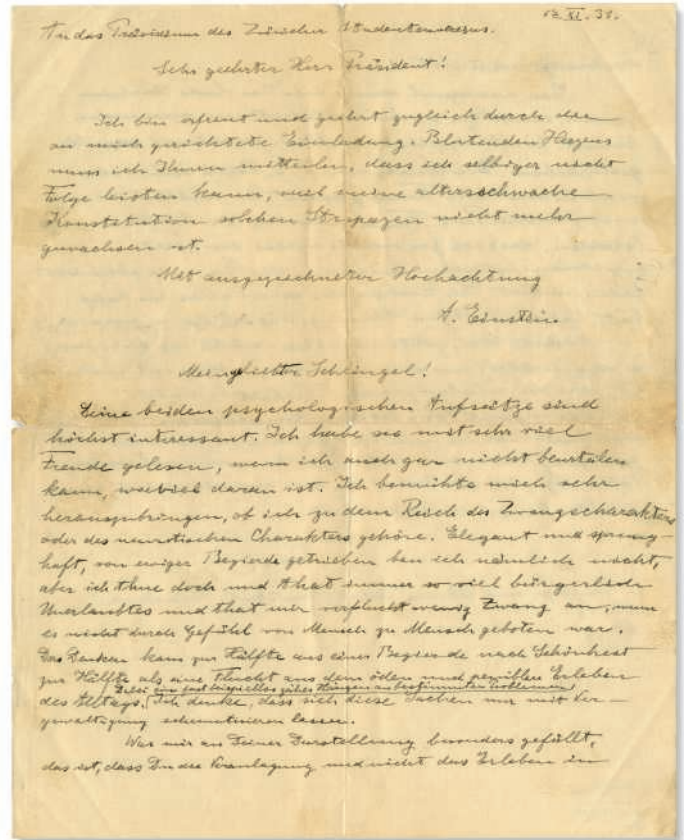 12.XI.31.
An das Präsidium des Züricher Studentenvereins.
Sehr geehrter Herr Präsident!
Ich bin erfreut und geehrt zugleich durch die
an mich gerichtete Einladung. Blutenden Herzens
muss ich Ihnen mitteilen, dass ich selbiger nicht
Folge leisten kann, weil meine altersschwache
Konstitution solchen Strapazen nicht mehr
gewachsen ist.
Mit ausgezeichneter Hochachtung
A. Einstein.
Mein geliebter Schlingel!
Deine beiden psychologischen Aufsätze sind
höchst interessant. Ich habe sie mit sehr viel
Freude gelesen, wenn ich auch gar nicht beurteilen
kann, wieviel daran ist. Ich bemühte mich sehr
herauszubringen, ob ich zu dem Reich des Zwangscharakters
oder des neurotischen Charakters gehöre. Elegant und sprung-
haft, von ewiger Begierde getrieben bin ich nämlich nicht,
aber ich thue doch und that immer so viel bürgerlich
Unerlaubtes und that mir verflucht wenig Zwang an, wenn
es nicht durch Gefühl von Mensch zu Mensch geboten war.
Das Denken kam zur Hälfte aus einer Begierde nach Schönheit
zur Hälfte als eine Flucht aus dem öden und Erleben
Dabei ein fast beispiellos zähes Hängen an bestimmten Problemen.
des Alltags. Ich denke, dass sich diese Sachen nur mit Ver-
gewaltigung schematisieren lassen.
Was mir an Deiner Darstellung besonders gefällt,
das ist, dass Du die Veranlagung und nicht das Erleben in